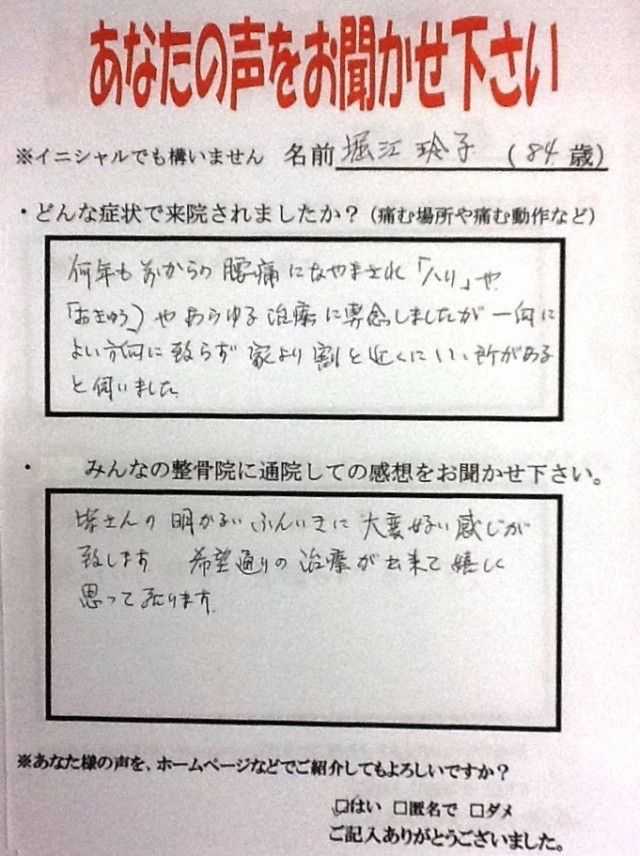 あなたの声をお聞かせ下さい
※イニシャルでも構いません 名前 堀江 玲子 (84歳)
・どんな症状で来院されましたか?(痛む場所や痛む動作など)
何年も前からの腰痛になやまされ「ハリ」や
「おきゅう」やあらゆる治療に専念しましたが一向に
よい方向に致らず家より割と近くにいい所がある
と伺いました
・ みんなの整骨院に通院しての感想をお聞かせ下さい。
皆さんの明かるいふんいきに大変好い感じが
致します 希望通りの治療が出来て嬉しく
思って居ります
※あなた様の声を、ホームページなどでご紹介してもよろしいですか?
☑はい □匿名で □ダメ
ご記入ありがとうございました。